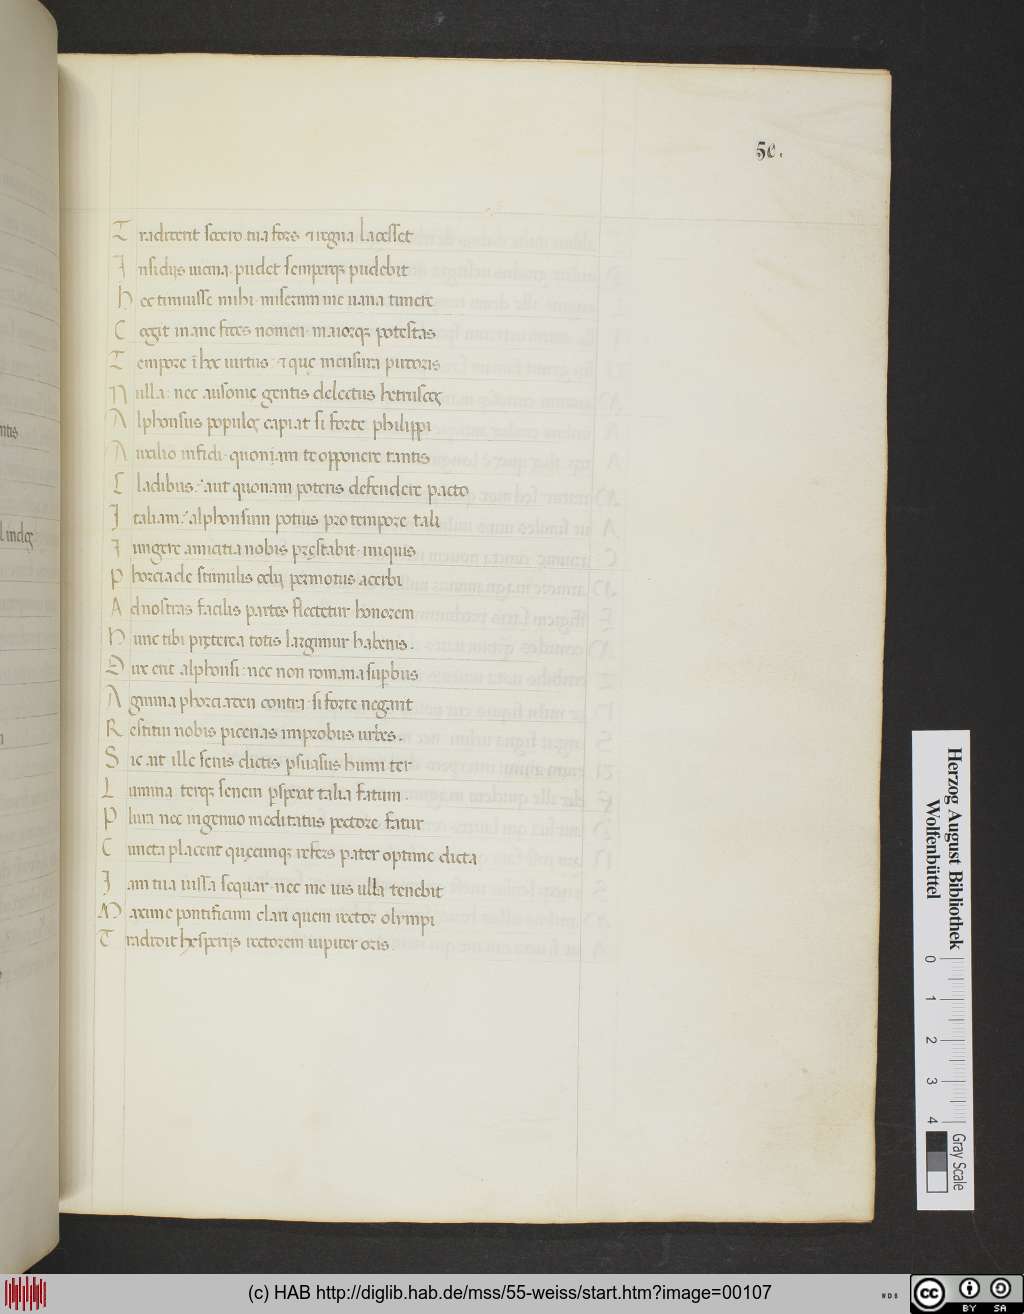 5e.
Tradiderit socero tua fors & regna lacesset
Insidijs uicina. pudet semperq; pudebit
Hec timuisse mihi. miserum me uana timere
Cogit inane sites nomen. maiorq; potestas
Tempore i hoc uirtus: & que mensura pudoris
Nulla: nec ausonie gentis delectus hetruscoq;
Alphonsus populoq; capiat si forte philippi
Auxilio infidi. quoniam te opponere tantis
Cladibus: aut quonam poteris defendere pacto
Italiam: alphonsum potius pro tempore tali
Iungere amicitia nobis prestabit. iniquis
Phorciade stimulis odij permotus acerbi
Ad nostras facilis partes flectetur honorem
Hunc tibi preterea totis largimur habenis.
Dux erit alphonsi: nec non romana supbus
Agmina phorciaden contra. si forte negarit
Restitui nobis picenas improbus urbes.
Sic ait ille senis dictis psuasus humi ter
Lumina. terq; senem pspexit talia fatum.
Plura nec ingenuo meditatus pectore fatur
Cuncta placent quecunq; refers pater optime dicta
Iam tua iussa sequar. nec me uis ulla tenebit
Maxime pontificum clari quem rector olympi
Tradidit hesperijs rectorem iupiter oris.
ntis
Herzog August Bibliothek
Wolfenbüttel
0 1 2 3 4
Gray Scale
(c) HAB http://diglib.hab.de/mss/55-weiss/start.htm?image=00107
cc BY SA